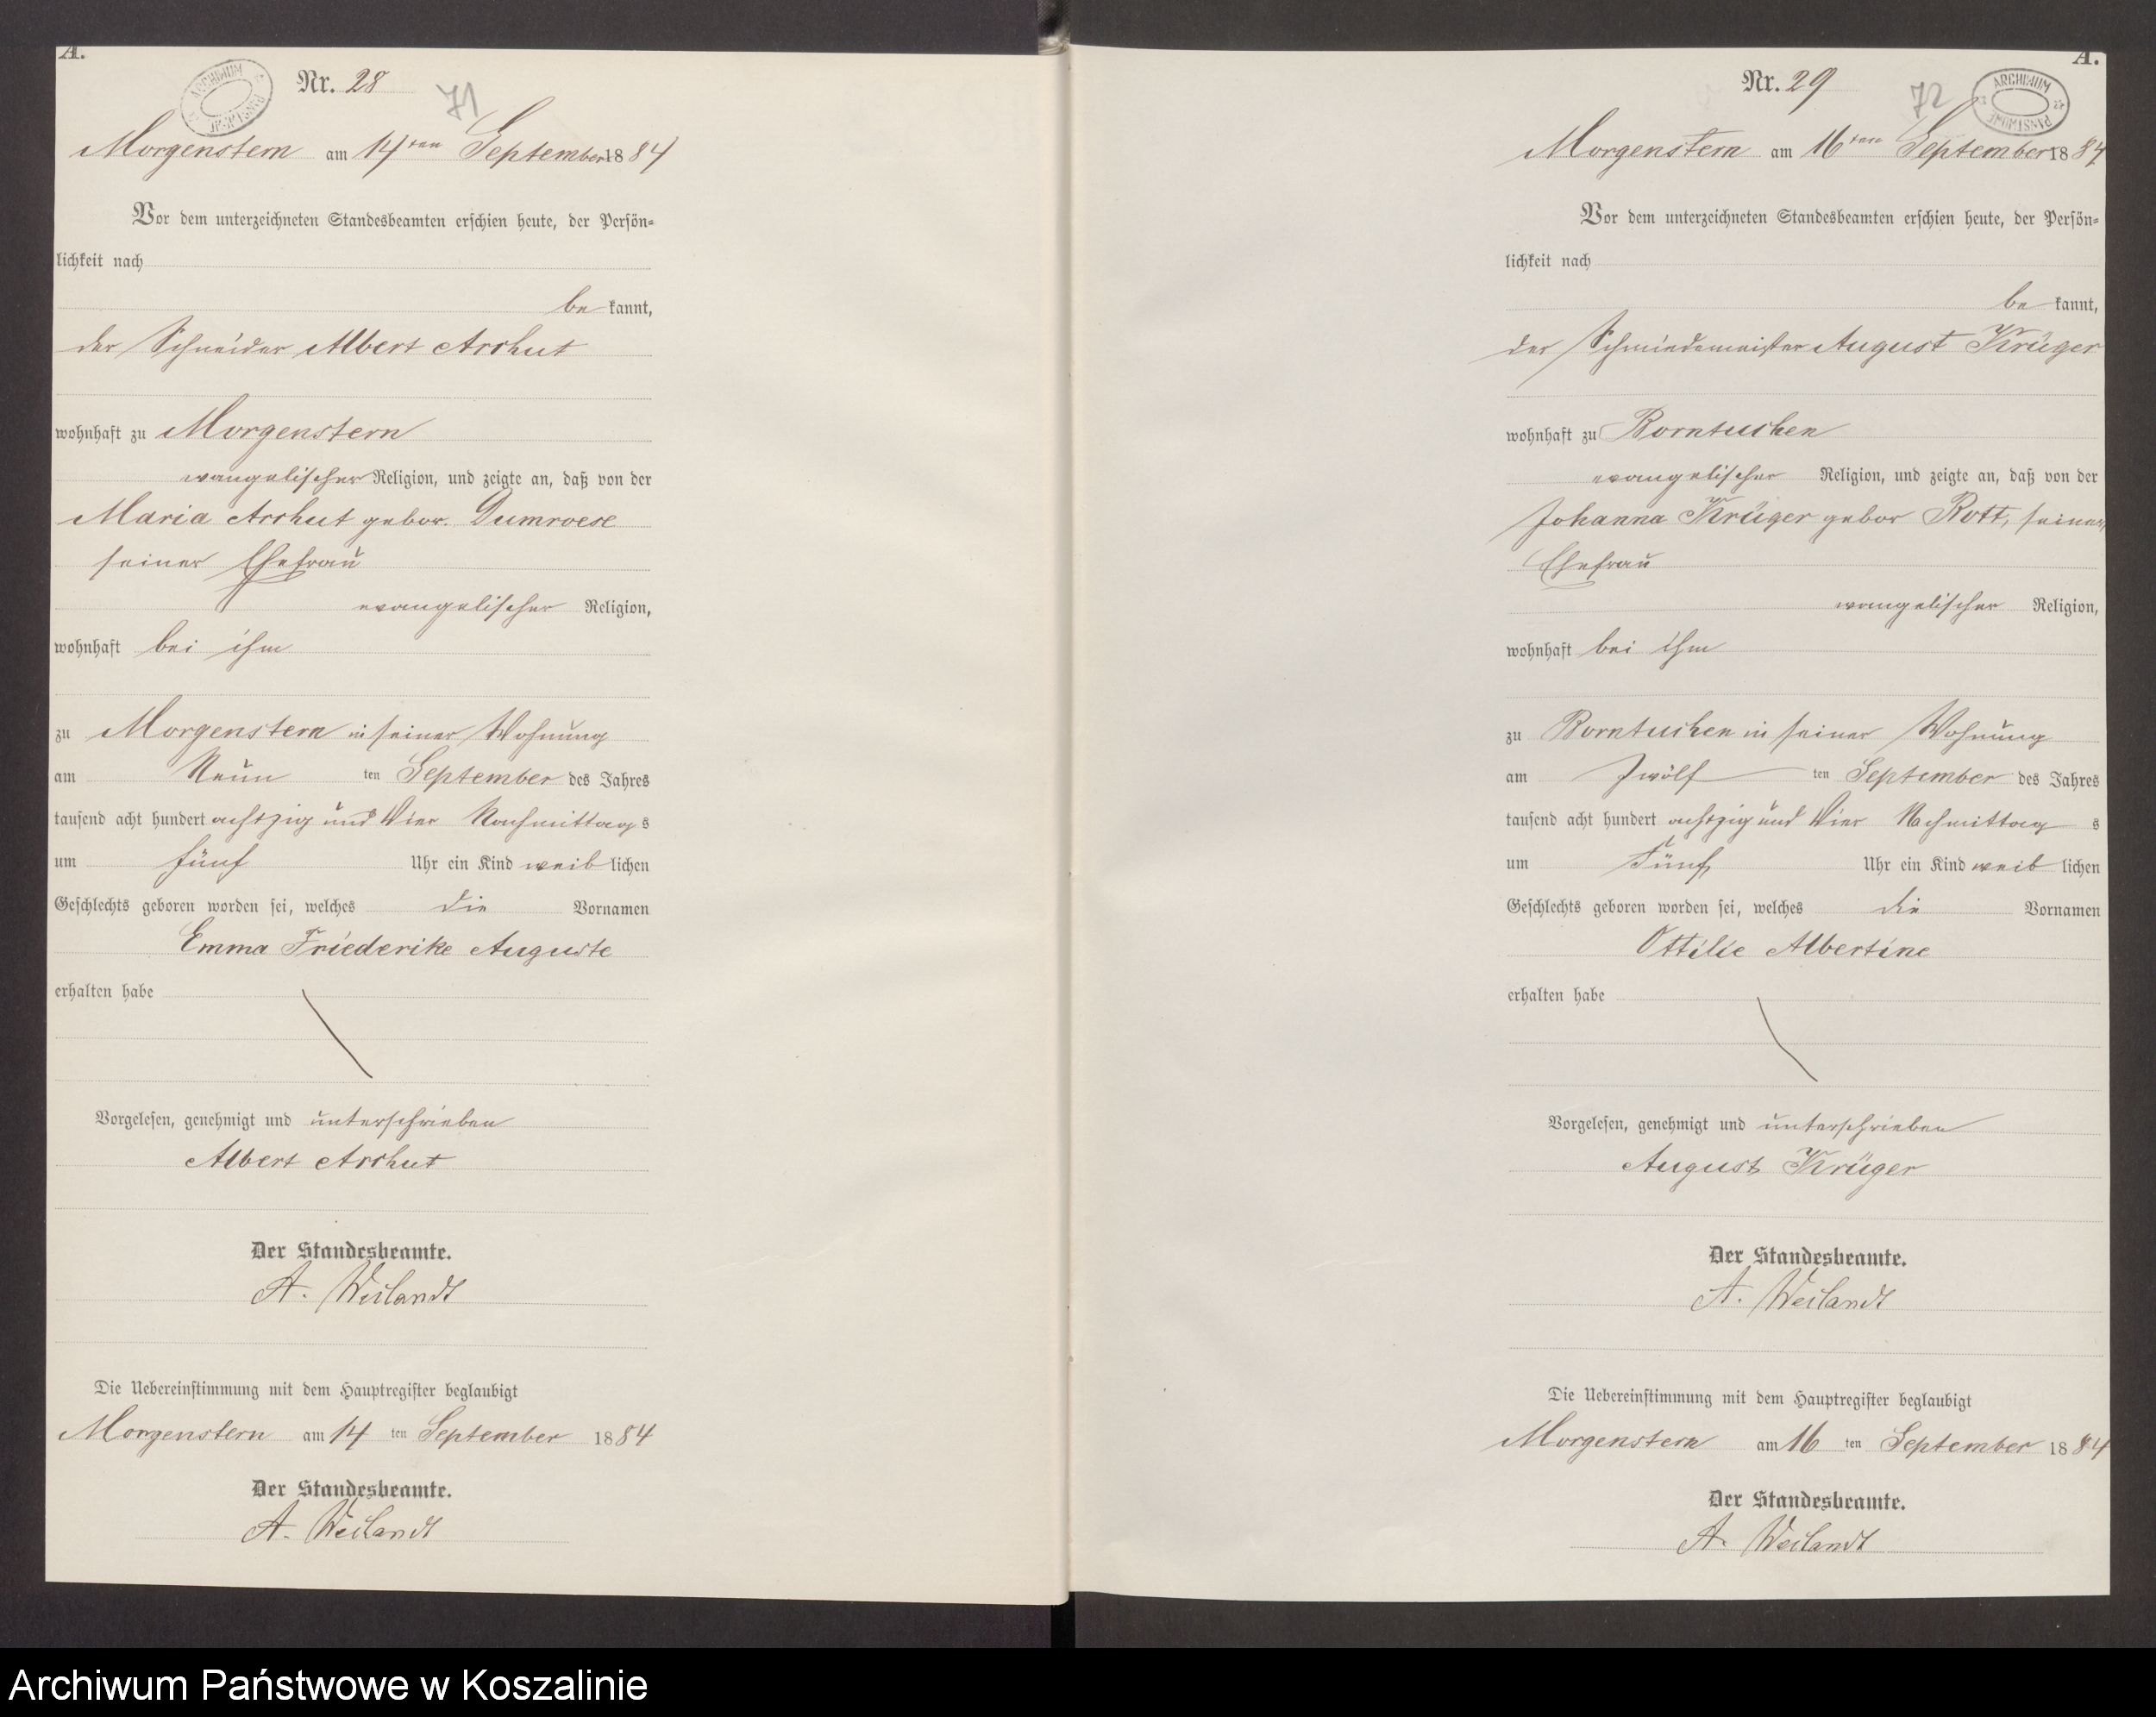 A.
ARCHIWUM PAŃSTWOWE
Nr. 28
71
Morgenstern am 14ten September 1884
Vor dem unterzeichneten Standesbeamten erschien heute, der Persön-
lichkeit nach
be kannt,
der Schneider Albert Arohut
wohnhaft zu Morgenstern
evangelischer Religion, und zeigte an, daß von der
Maria Arohut gebor. Dumroese
seiner Ehefrau
evangelischer Religion,
wohnhaft bei ihm
zu Morgenstern in seiner Wohnung
am Neun ten September des Jahres
tausend acht hundert achtzig und Vier Nachmittags
um fünf Uhr ein Kind weiblichen
Geschlechts geboren worden sei, welches die Vornamen
Emma Friederike Auguste
erhalten habe
Vorgelesen, genehmigt und unterschrieben
Albert Arohut
Der Standesbeamte.
A. Weilandt
Die Uebereinstimmung mit dem Hauptregister beglaubigt
Morgenstern am 14 ten September 1884
Der Standesbeamte.
A. Weilandt
A.
ARCHIWUM PAŃSTWOWE
Nr. 29
72
Morgenstern am 16ten September 1884
Vor dem unterzeichneten Standesbeamten erschien heute, der Persön-
lichkeit nach
be kannt,
der Schmiedemeister August Krüger
wohnhaft zu Borntuchen
evangelischer Religion, und zeigte an, daß von der
Johanna Krüger gebor Rott, seiner
Ehefrau
evangelischer Religion,
wohnhaft bei ihm
zu Borntuchen in seiner Wohnung
am Zwölf ten September des Jahres
tausend acht hundert achtzig und Vier Nachmittag s
um Fünf Uhr ein Kind weib lichen
Geschlechts geboren worden sei, welches die Vornamen
Ottilie Albertine
erhalten habe
Vorgelesen, genehmigt und unterschrieben
August Krüger
Der Standesbeamte.
A. Weilandt
Die Uebereinstimmung mit dem Hauptregister beglaubigt
Morgenstern am 16 ten September 1884
Der Standesbeamte.
A. Weilandt
Archiwum Państwowe w Koszalinie